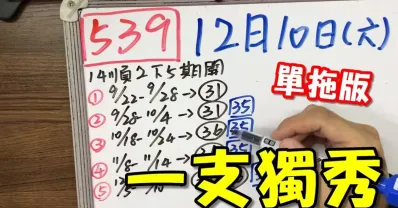 539 12月10日(六)
14順2下5期開
單拖版
① 9/22-9/28→31 35
② 9/28 10/4→31 35
③ 10/18-10/24→36 35
④ 11/8-11/14→
⑤
一支獨秀